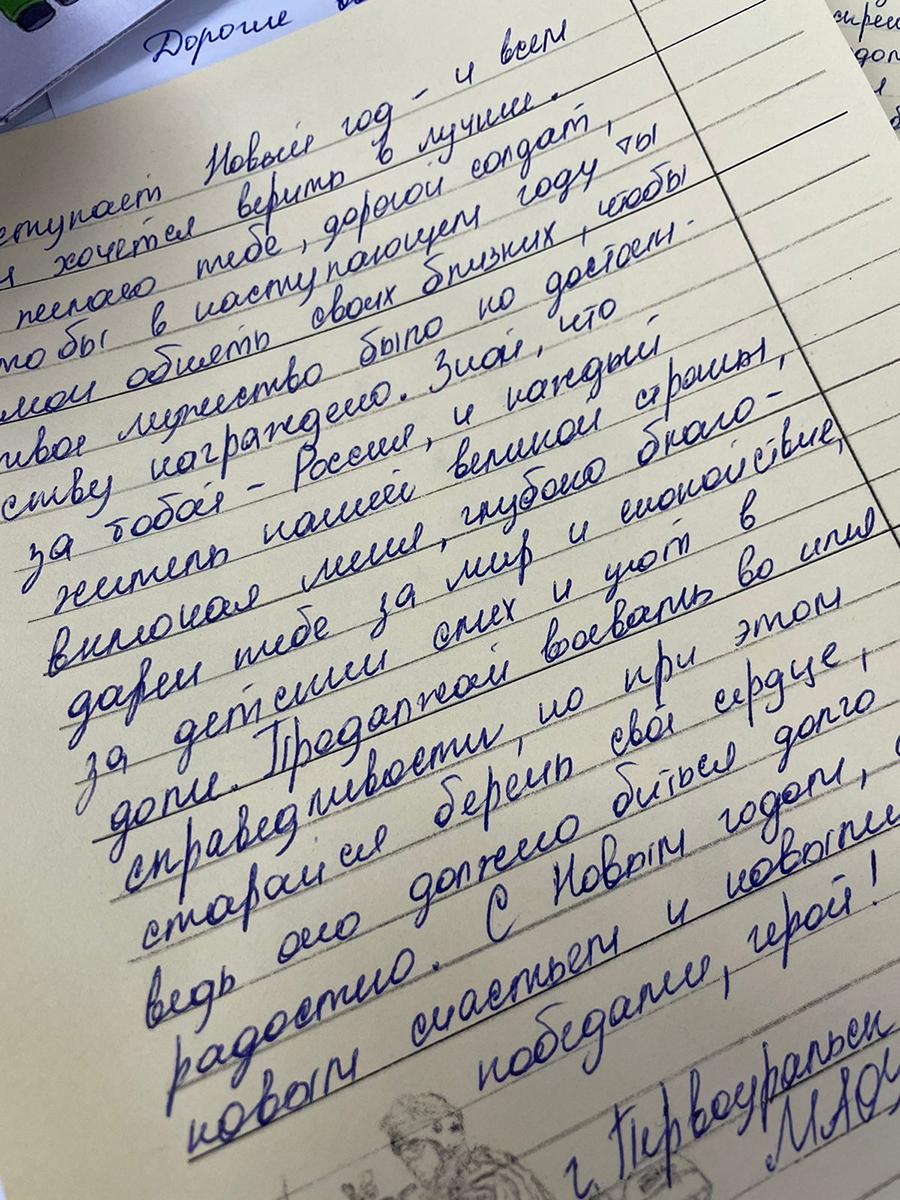 Дорогие
ступает Новый год - и всем
хочется верить в лучшее.
желаю тебе, дорогой солдат,
чтобы в наступающем году ты
мог обнять своих близких, чтобы
твое мужество было по достоин-
ству награждено. Знай, что
за тобой - Россия, и каждый
житель нашей великой страны,
включая меня, глубоко благо-
дарен тебе за мир и спокойствие,
за детский смех и уют в
доме. Продолжай воевать во имя
справедливости, но при этом
старайся беречь своё сердце,
ведь оно должно биться долго
радостно. С Новым годом, с
новым счастьем и новыми
победами, герой!
г. Первоуральск
МАОУ